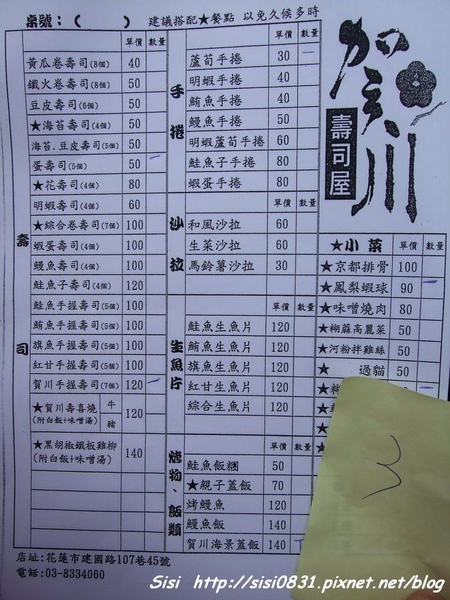 桌號：（　　）　建議搭配★餐點　以免久候多時
單價　數量
黃瓜卷壽司(8個)　40
鐵火卷壽司(8個)　50
豆皮壽司(6個)　50
★海苔壽司(4個)　50
海苔.豆皮壽司(5個)　50
蛋壽司(5個)　50
★花壽司(4個)　80
明蝦壽司(4個)　60
★綜合卷壽司(7個)　100
蝦蛋壽司(4個)　100
鰻魚壽司(4個)　100
鮭魚子壽司(4個)　120
鮭魚手握壽司(5個)　100
鮪魚手握壽司(5個)　100
旗魚手握壽司(5個)　100
紅甘手握壽司(5個)　100
賀川手握壽司(7個)　120
★賀川壽喜燒　牛　120
(附白飯+味噌湯)　豬
★黑胡椒鐵板雞柳　140
(附白飯+味噌湯)
壽司
手捲
單價　數量
蘆筍手捲　30
明蝦手捲　40
鮪魚手捲　40
鰻魚手捲　50
明蝦蘆筍手捲　60
鮭魚子手捲　80
蝦蛋手捲　80
沙拉
單價　數量
和風沙拉　60
生菜沙拉　60
馬鈴薯沙拉　30
生魚片
單價　數量
鮭魚生魚片　120
鮪魚生魚片　120
旗魚生魚片　120
紅甘生魚片　120
綜合生魚片　120
烤物、飯類
單價　數量
鮭魚飯糰　50
★親子蓋飯　70
烤鰻魚　120
鰻魚飯　140
賀川海景蓋飯　140
賀川
壽司屋
★小菜　單價　數量
★京都排骨　100
★鳳梨蝦球　90
★味噌燒肉　80
★糊蔴高麗菜　50
★河粉拌雞絲　50
★　過貓　50
3
店址:花蓮市建國路107巷45號
電話:03-8334060
Sisi　http://sisi0831.pixnet.net/blog